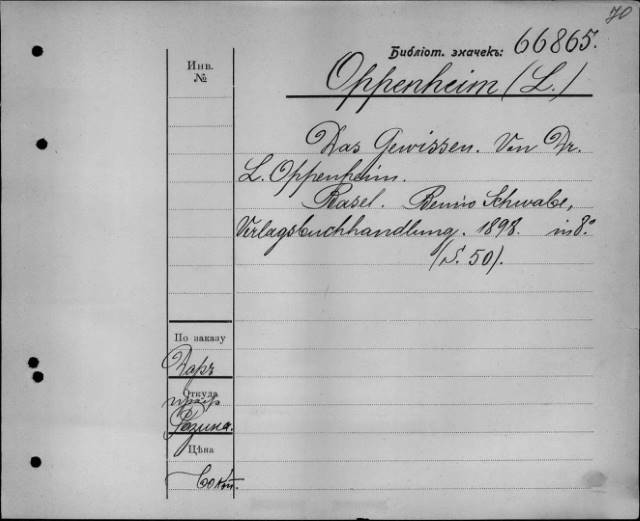 70
Библіот. значекъ: 66865.
Инв.
№
Oppenheim (L.)
Das Gewissen. Von Dr.
L. Oppenheim.
Basel. Benno Schwabe,
Verlagsbuchhandlung. 1898. in 8.°
(S. 50).
По заказу
Даръ
Откуда
проф.
Розина.
Цѣна
60 коп.